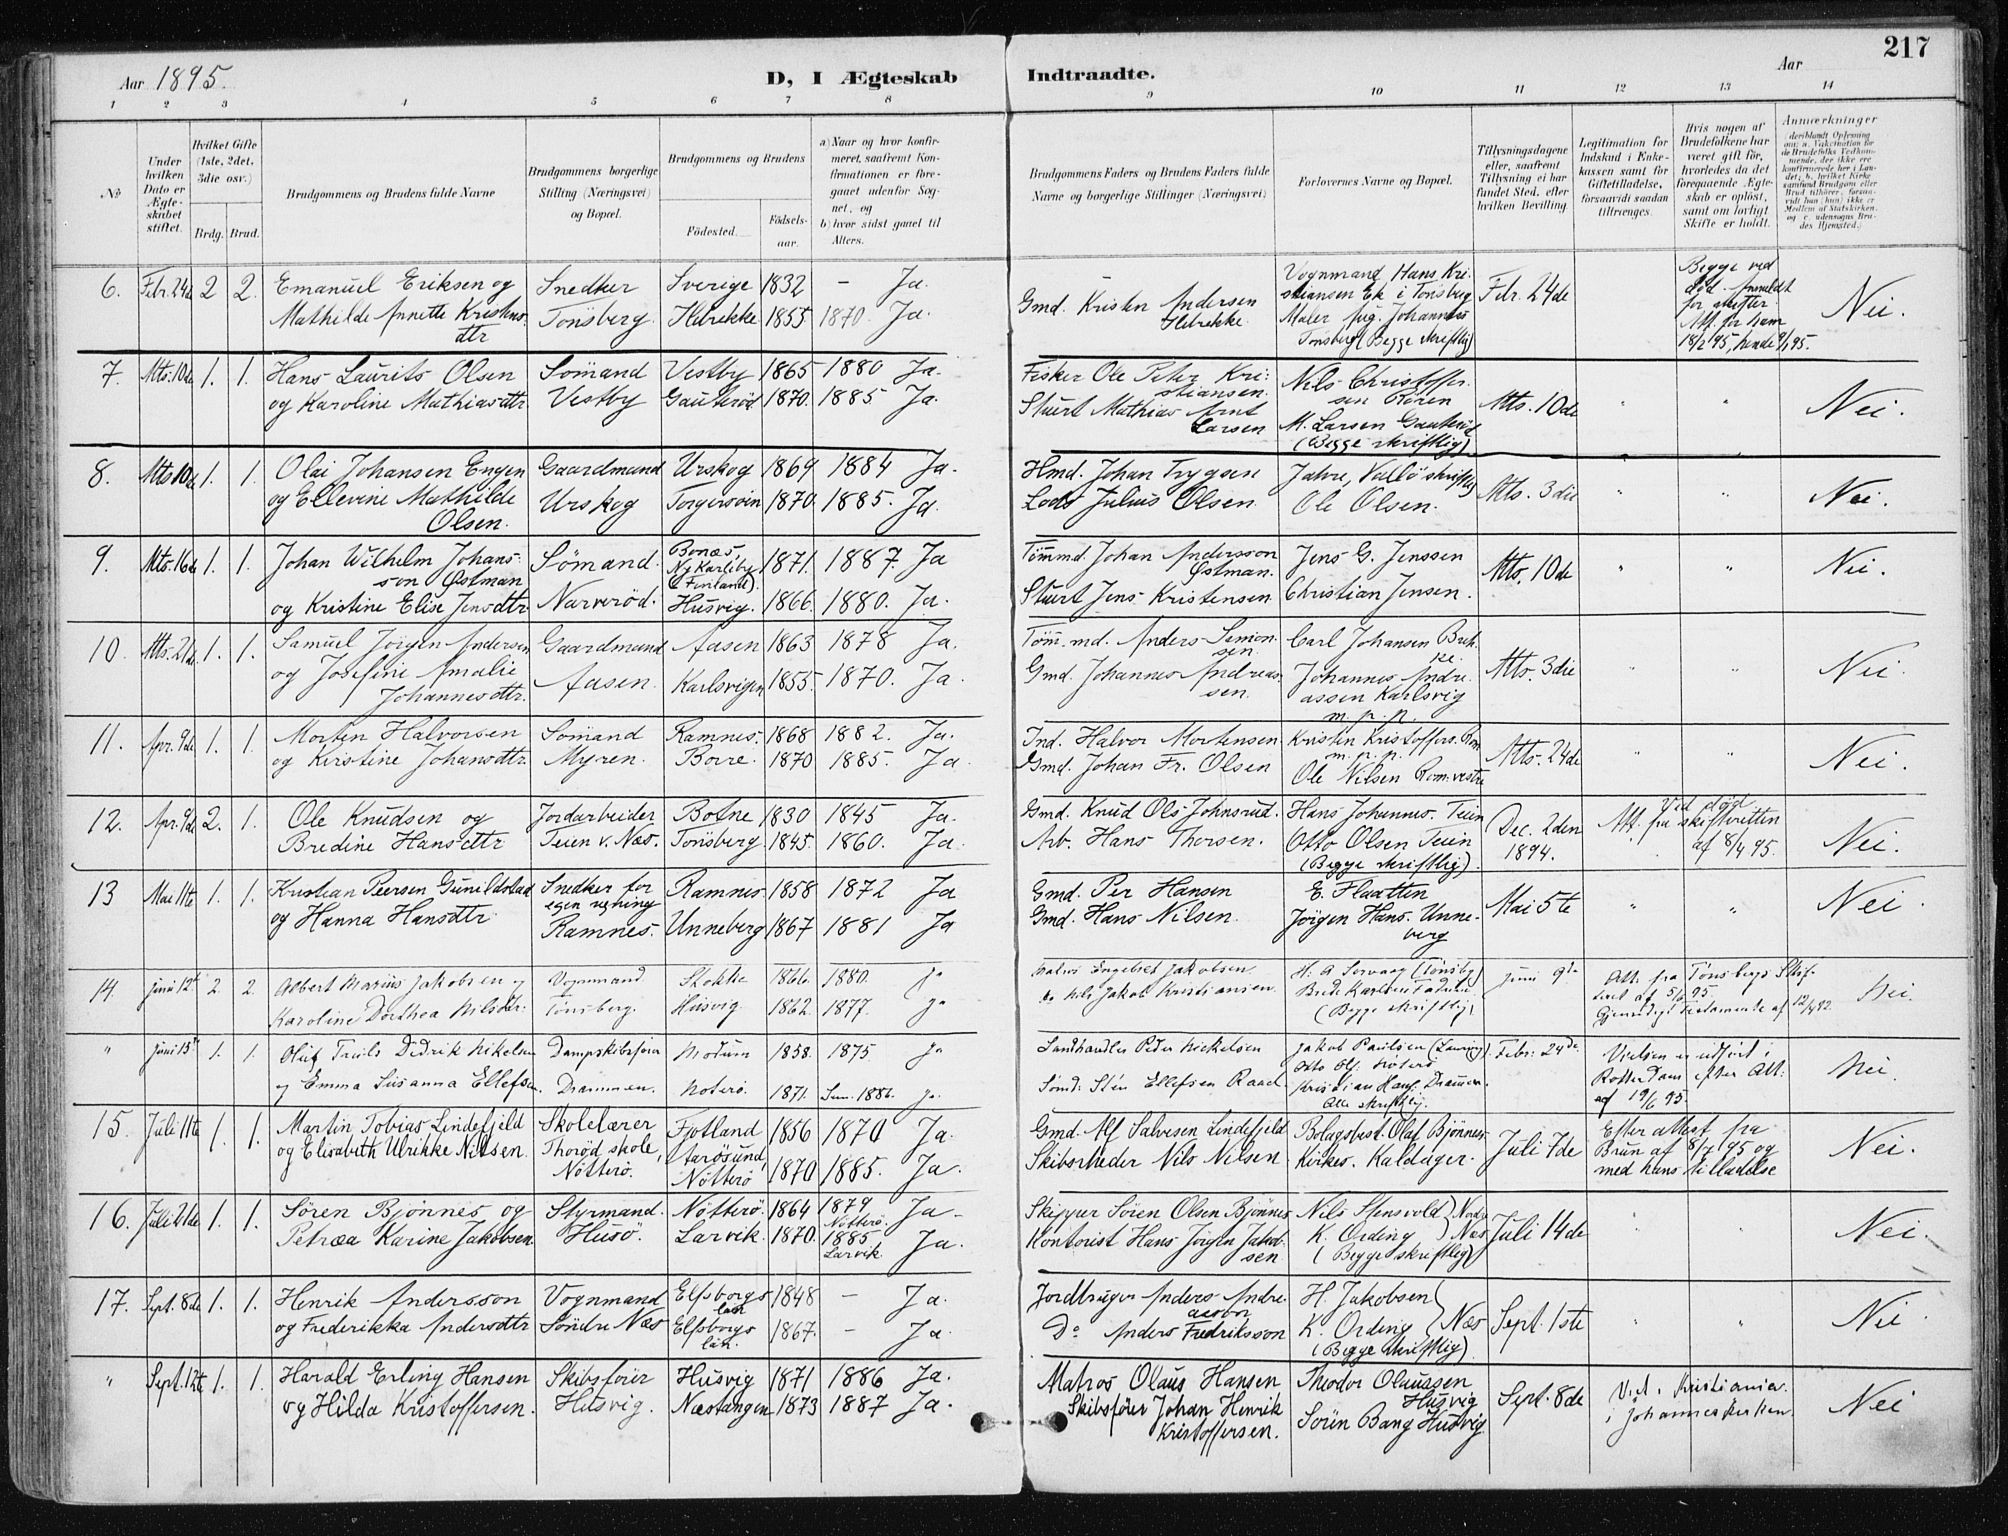 217
Aar 1895.
D, I Ægteskab Indtraadte.
Aar
1 2 3 4 5 6 7 8 9 10 11 12 13 14
No
Under hvilken Dato er Ægteskabet stiftet.
Hvilket Gifte (1ste, 2det, 3die osv.)
Brdg. Brud.
Brudgommens og Brudens fulde Navne
Brudgommens borgerlige Stilling (Næringsvei) og Bopæl.
Brudgommens og Brudens
Fødested.
Fødselsaar.
a) Naar og hvor konfirmeret, saafremt Konfirmationen er foregaaet udenfor Sognet, og
b) hvor sidst gaaet til Alters.
Brudgommens Faders og Brudens Faders fulde Navne og borgerlige Stillinger (Næringsvei)
Forlovernes Navne og Bopæl.
Tillysningsdagene eller, saafremt Tillysning ei har fundet Sted, efter hvilken Bevilling
Legitimation for Indskud i Enkekassen samt for Giftetilladelse, forsaavidt saadan tiltrænges.
Hvis nogen af Brudefolkene har været gift før, hvorledes da det foregaaende Ægteskab er opløst, samt om lovligt Skifte er holdt.
Anmærkninger
6. Febr. 24de 2 2. Emanuel Eriksen og Snedker Sverige 1832 – Ja.
Mathilde Annette Kristens dtr Tönsberg. Ilebrekke 1855 1870. Ja.
Gmd. Kristen Andersen Ilebrekke.
Vognmand Hans Kristiansen Ek i Tönsberg
Maler Aug. Johannes Tönsberg (Begge skriftlig)
Febr. 24de
Begge ved död. Anmeldt for skifter. Att. for ham 18/2 95, hende 9/1 95.
Nei.
7. Mts. 10de 1. 1. Hans Laurits Olsen Sömand Vestby 1865 1880 Ja.
og Karoline Mathiasdtr. Vestby Gauteröd. 1870. 1885 Ja.
Fisker Ole Peter Kristiansen.
Stuert Mathias Arnt Larsen
Nils Christoffersen Rören
M. Larsen Gauteröd (Begge skriftlig)
Mts. 10de " " Nei.
8. Mts 10de 1. 1. Olai Johansen Engen Gaardmand Urskog 1869 1884 Ja.
og Ellevine Mathilde Olsen. Urskog Torgersöien 1870. 1885. Ja.
Hmd. Johan Trygsen
Lods Julius Olsen.
Jahre, Vallö skriftlig
Ole Olsen.
Mts. 3die " " Nei.
9. Mts. 16de 1. 1. Johan Wilhelm Johansson Østman Sömand. Bonäs, Ny Karleby (Finland). 1871. 1887. Ja
og Kristine Elise Jensdtr Narveröd. Husvig. 1866. 1880. Ja.
Tömmd. Johan Andersson Østman.
Stuert Jens Kristensen
Jens G. Jenssen
Christian Jensen.
Mts. 10de " " Nei.
10. Mts. 21de 1. 1. Samuel Jörgen Andersen Gaardmand Aasen 1863 1878 Ja.
og Josefine Amalie Johannesdtr. Aasen. Karlsvigen 1855. 1870. Ja.
Tömmd. Anders Samonsen.
Gmd. Johannes Andreassen.
Carl Johansen Bakke.
Johannes Andreassen Karlsvig m. p. p.
Mts. 3die " " Nei.
11. Apr. 9de 1. 1. Morten Halvorsen Sömand Ramnes. 1868 1882. Ja.
og Kirstine Johansdtr. Myren. Borre. 1870 1885. Ja.
Ind. Halvor Mortensen
Gmd. Johan Fr. Olsen
Kristen Kristoffers. Rom m. p. p.
Ole Nilsen Rom vestre
Mts. 24de " " Nei.
12. Apr. 9de 2. 1. Ole Knudsen og Jordarbeider Botne 1830 1845 Ja.
Bredine Hansdtr Teien v. Næs. Tönsberg 1845. 1860. Ja.
Gmd. Knud Ols. Johnsrud.
Arb. Hans Thorsen.
Hans Johannes. Teien
Otto Olsen Teien (Begge skriftlig).
Dec. 2den 1894.
Ved död Att. fra skifteretten af 8/4 95.
Nei.
13 Mai 11te 1. 1. Kristian Peersen Gunildstad Snedker for egen regning Ramnes. 1858 1872 Ja
og Hanna Hansdtr. Ramnes. Unneberg 1867 1881 Ja
Gmd. Per Hansen
Gmd. Hans Nilsen.
E. Flaatten
Jörgen Hans. Unneberg
Mai 5te " " Nei.
14. Juni 12te 2. 2. Albert Marius Jakobsen og Vognmand Stokke 1866. 1880. Ja
Karoline Dorthea Nilsdtr. Tönsberg. Husvig 1862. 1877. Ja
Engebret Jakobsen.
Nils Jakob Kristiansen
H. A. (Tönsbg) Brede Karlsen (Begge skriftlig)
Juni 9de
Att. fra Tönsbergs Skifteret af 5/6 95. Gjensidigt Testamente af 12/4 92
Nei.
" Juni 15de 1. 1. Oluf Truls Didrik Nikelsen Dampskibsförer Modum 1858. 1875 Ja
og Emma Susanna Ellefsen. Drammen. Nöterö. 1871. 1886. Ja.
Landhandler Peder Nickelsen
Sömd. Sten Ellefsen Raael
Jakob Paulsen
Otto Nöterö
Kristian Drammen. Alle skriftlig.
Febr. 24de
Vielsen er udfört i Rotterdam efter Att. af 19/6 95.
Nei.
15. Juli 11te 1. 1. Martin Tobias Lindefjeld Skolelærer Fjotland 1856 1870 Ja.
og Elisabeth Ulrikke Nilsen. Thoröd skole, Nötterö. Aarösund, Nötterö 1870 1885. Ja.
Gmd. Alf Salvesen Lindefjeld
Skibsrheder Nils Nilsen.
Bolagsbest. Olaf Bjönnes
Kirkes. Kaldager.
Juli 7de
Efter attest fra Brun af 8/7 95 og med hans tilladelse
Nei.
16. Juli 21de 1. 1. Sören Bjönnes og Styrmand. Nötterö. 1864 1879 Nötterö. Ja.
Petræa Karine Jakobsen Husö. Larvik. 1870. 1885 Larvik. Ja.
Skipper Sören Olsen Bjönnes
Kontorist Hans Jörgen Jakobsen
Nils Stensvold
K. Ording Næs (Begge skriftlig)
Juli 14de " " Nei.
17. Sept. 8de 1. 1. Henrik Andersson Vognmand Elfsborgs län 1848 – Ja.
og Frederikka Andersdtr Söndre Næs Elfsborgs län. 1867. – Ja.
Jordbruger Anders Andreasson
Do Anders Fredriksson
H. Jakobsen
K. Ording Næs (Begge skriftlig).
Sept. 1ste " " Nei
" Sept. 12te 1. 1. Harald Erling Hansen Skibsförer Husvig 1871 1886 Ja.
og Hilda Kristoffersen. Husvig. Næstangen 1873 1887 Ja.
Matros Olaus Hansen
Skibsförer Johan Henrik Kristoffersen.
Theodor Olaussen Husvig
Sören Bang Husvig.
Sept. 8de
Viet i Kristiania i Johanneskirken
Nei